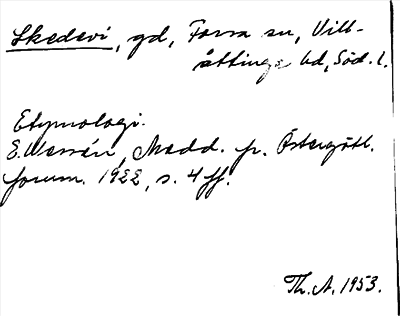 Skedevi, gd, Forsa sn, Vill-
åttinge hd, Söd. l.
Etymologi.
E. Wessén, Medd. fr. Östergötl.
fornm. 1922, s. 4 ff.
Th. A. 1953.